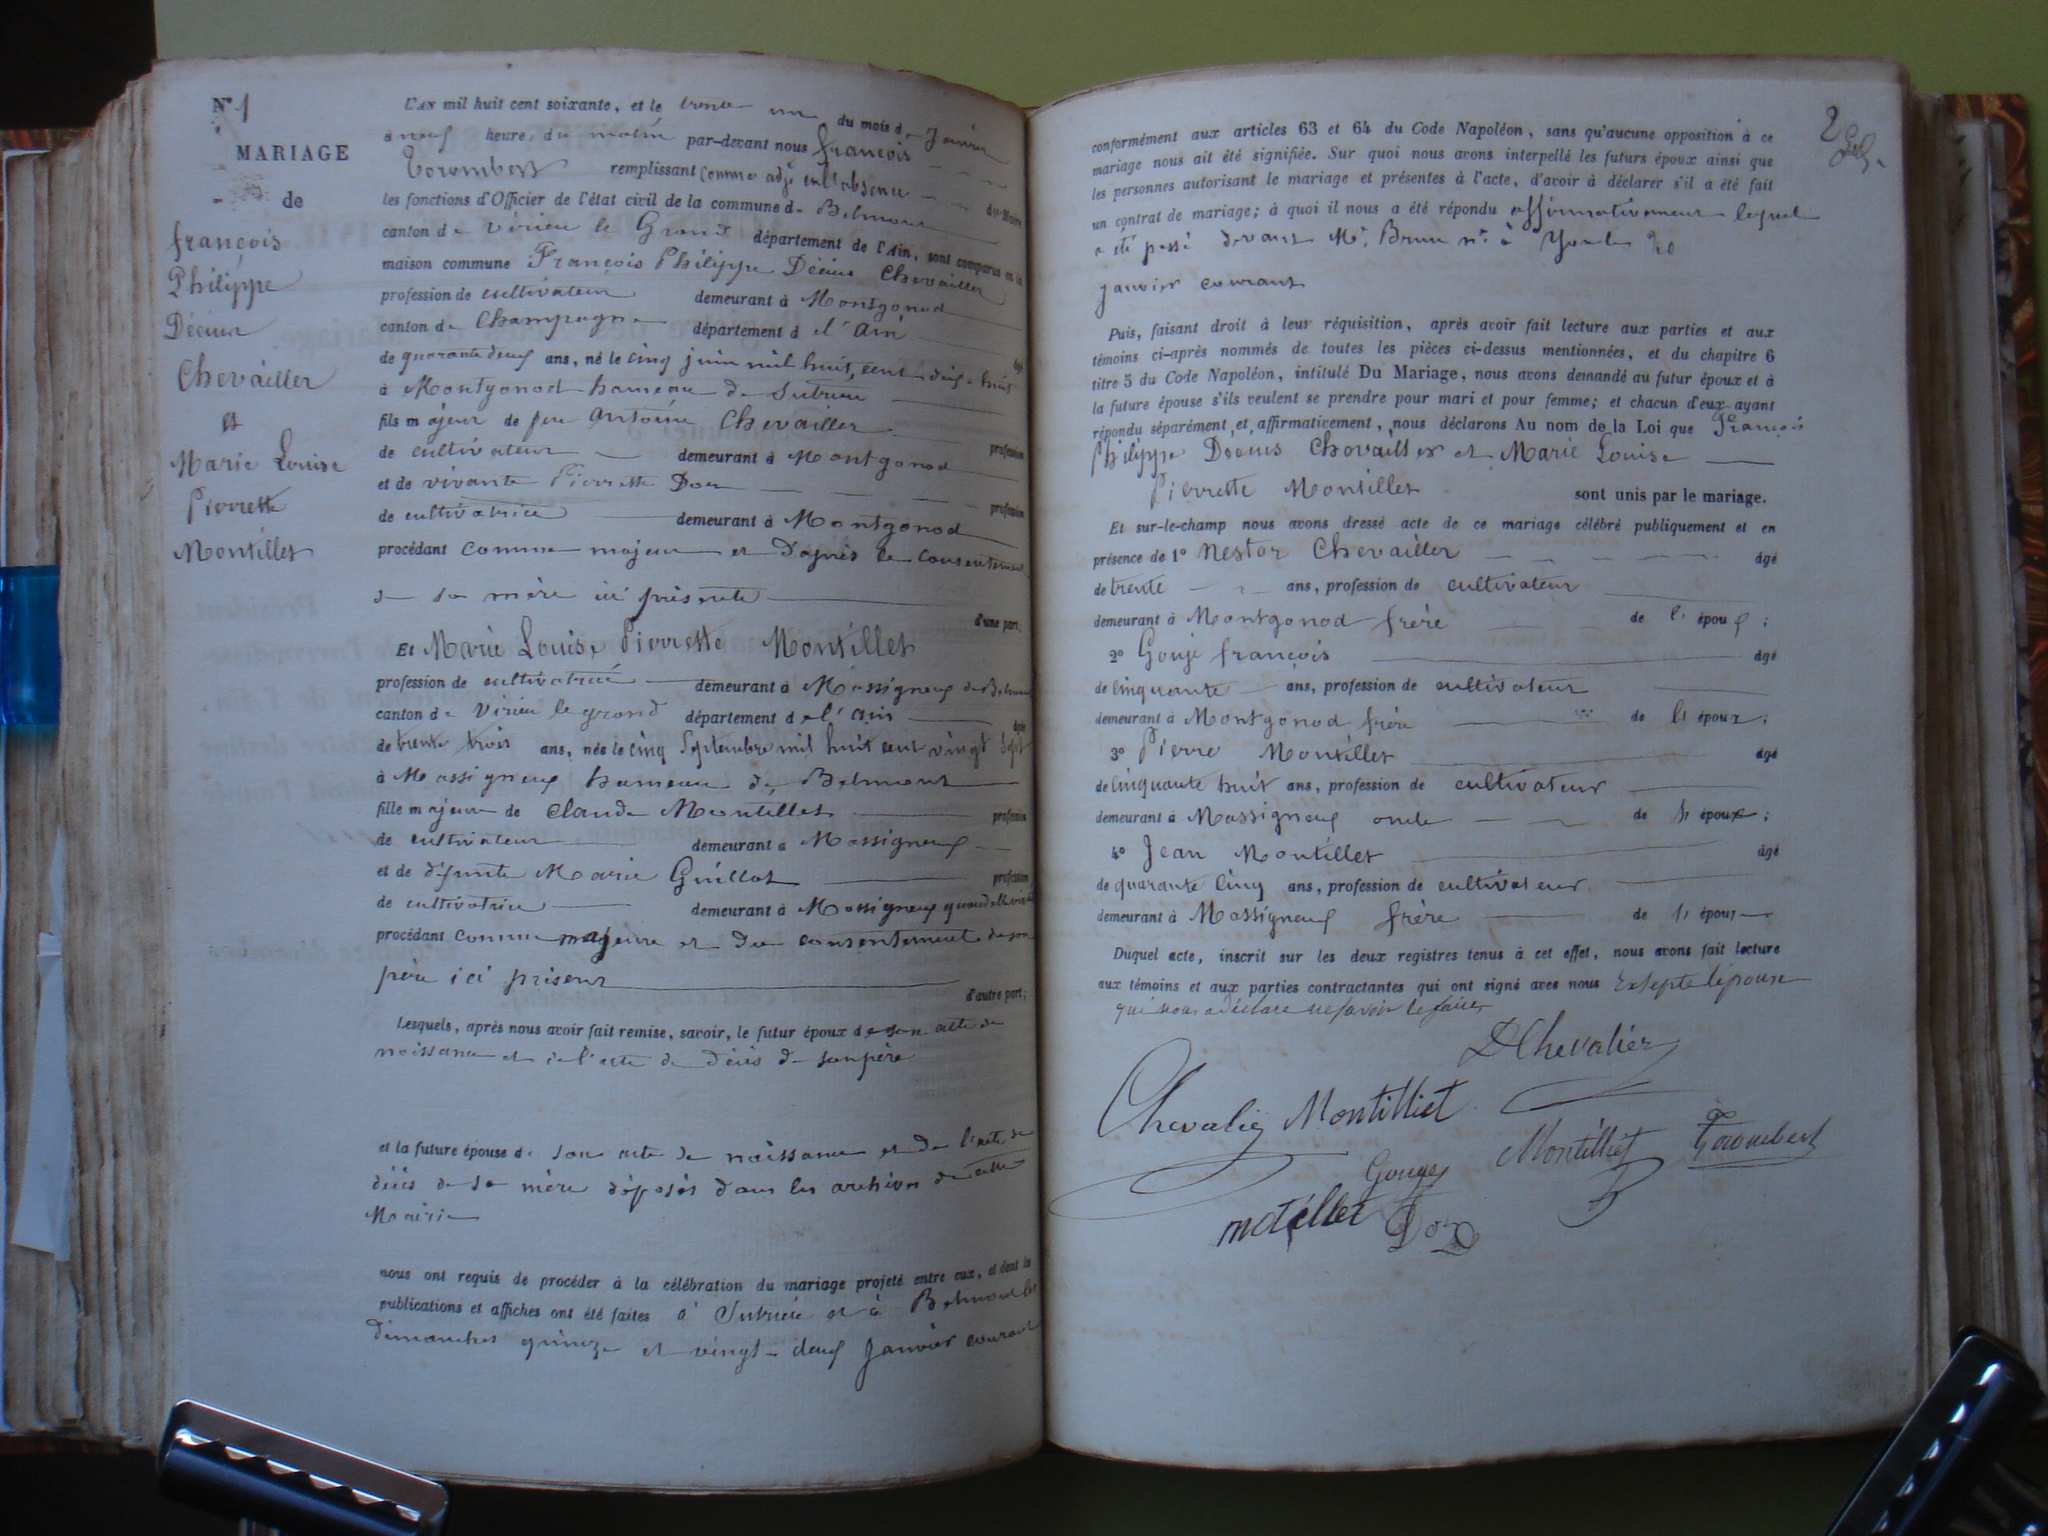 N° 1
MARIAGE
de
françois
Philippe
Décius
Chevailler
et
Marie Louise
Pierrette
Montillet
L'AN mil huit cent soixante, et le trente un du mois de Janvier
à neuf heure, du matin par-devant nous françois
Torombert remplissant comme adjt en l'absence du Maire
les fonctions d'Officier de l'état civil de la commune de Belmont
canton de Virieu le Grand département de l'Ain, sont comparus en la
maison commune François Philippe Décius Chevailler
profession de cultivateur demeurant à Montgonod
canton de Champagne département d el' Ain âgé
de quarante deux ans, né le cinq juin mil huit cent dix-huit
à Montgonod hameau de Sutrieu
fils majeur de feu Antoine Chevailler profession
de cultivateur demeurant à Montgonod
et de vivante Pierrette Dox profession
de cultivatrice demeurant à Montgonod
procédant comme majeur et d'après le consentement
de sa mère ici présente d'une part;
Et Marie Louise Pierrette Montillet
profession de cultivatrice demeurant à Massigneux de Belmont
canton de Virieu le grand département d el' ain âgée
de trente trois ans, née le cinq Septembre mil huit cent vingt sept
à Massigneux hameau de Belmont
fille majeure de Claude Montillet profession
de cultivateur demeurant à Massigneux
et de défunte Marie Guillot profession
de cultivatrice demeurant à Massigneux quand elle vivait
procédant comme majeure et du consentement de son
père ici présent d'autre part;
Lesquels, après nous avoir fait remise, savoir, le futur époux de son acte de
naissance et de l'acte de décès de son père
et la future épouse de son acte de naissance et de l'acte de
décès de sa mère déposés dans les archives de cette
Mairie
nous ont requis de procéder à la célébration du mariage projeté entre eux, et dont les
publications et affiches ont été faites à Sutrieu et à Belmont les
dimanches quinze et vingt-deux Janvier courant
2
conformément aux articles 63 et 64 du Code Napoléon, sans qu'aucune opposition à ce
mariage nous ait été signifiée. Sur quoi nous avons interpellé les futurs époux ainsi que
les personnes autorisant le mariage et présentes à l'acte, d'avoir à déclarer s'il a été fait
un contrat de mariage; à quoi il nous a été répondu affirmativement lequel
a été passé devant Me. Brun nre à 20
janvier courant
Puis, faisant droit à leur réquisition, après avoir fait lecture aux parties et aux
témoins ci-après nommés de toutes les pièces ci-dessus mentionnées, et du chapitre 6
titre 5 du Code Napoléon, intitulé Du Mariage, nous avons demandé au futur époux et à
la future épouse s'ils veulent se prendre pour mari et pour femme; et chacun d'eux ayant
répondu séparément et affirmativement, nous déclarons Au nom de la Loi que François
Philippe Décius Chevailler et Marie Louise
Pierrette Montillet sont unis par le mariage.
Et sur-le-champ nous avons dressé acte de ce mariage célébré publiquement et en
présence de 1° Nestor Chevailler âgé
de trente ans, profession de cultivateur
demeurant à Montgonod frère de l' époux;
2° Gouje françois âgé
de cinquante ans, profession de cultivateur
demeurant à Montgonod frère de l' époux;
3° Pierre Montillet âgé
de cinquante huit ans, profession de cultivateur
demeurant à Massigneux oncle de l' époux;
4° Jean Montillet âgé
de quarante cinq ans, profession de cultivateur
demeurant à Massigneux frère de l' épouse
Duquel acte, inscrit sur les deux registres tenus à cet effet, nous avons fait lecture
aux témoins et aux parties contractantes qui ont signé avec nous Exsepté lépouse
qui nous a déclaré ne savoir le faire
D Chevalier
Chevalier Montilliet
Montilliet Torombert
Gouges
motéllet Dox